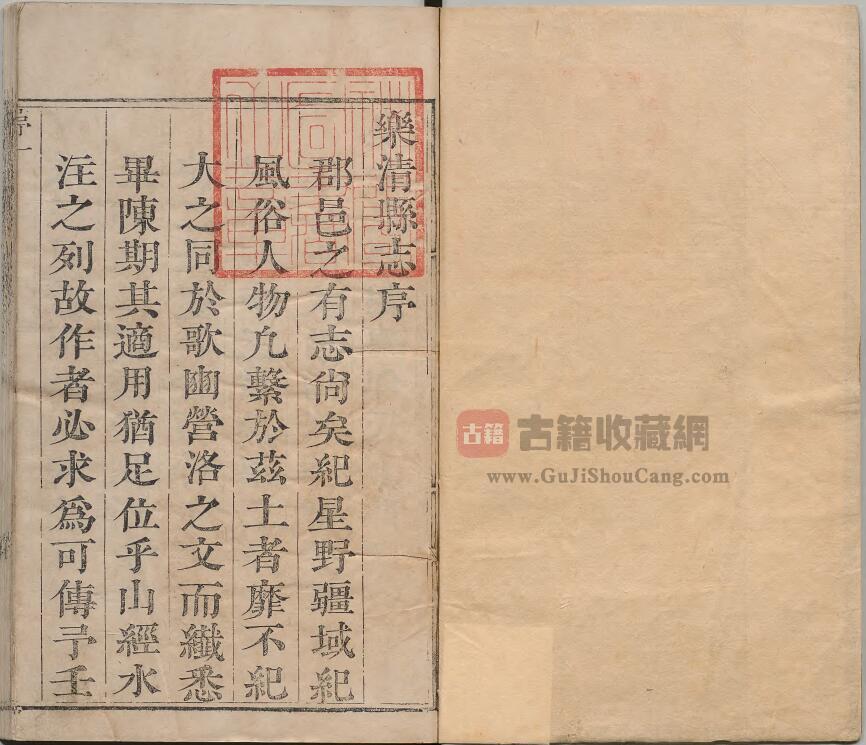 樂清縣志序
郡邑之有志尙矣紀星野疆域紀
風俗人物凢繫於茲土者靡不紀
大之同於歌豳營洛之文而纖悉
畢陳期其適用猶足位乎山經水
注之列故作者必求爲可傳予壬
序 一
古籍 古籍收藏網
www.GuJiShouCang.com